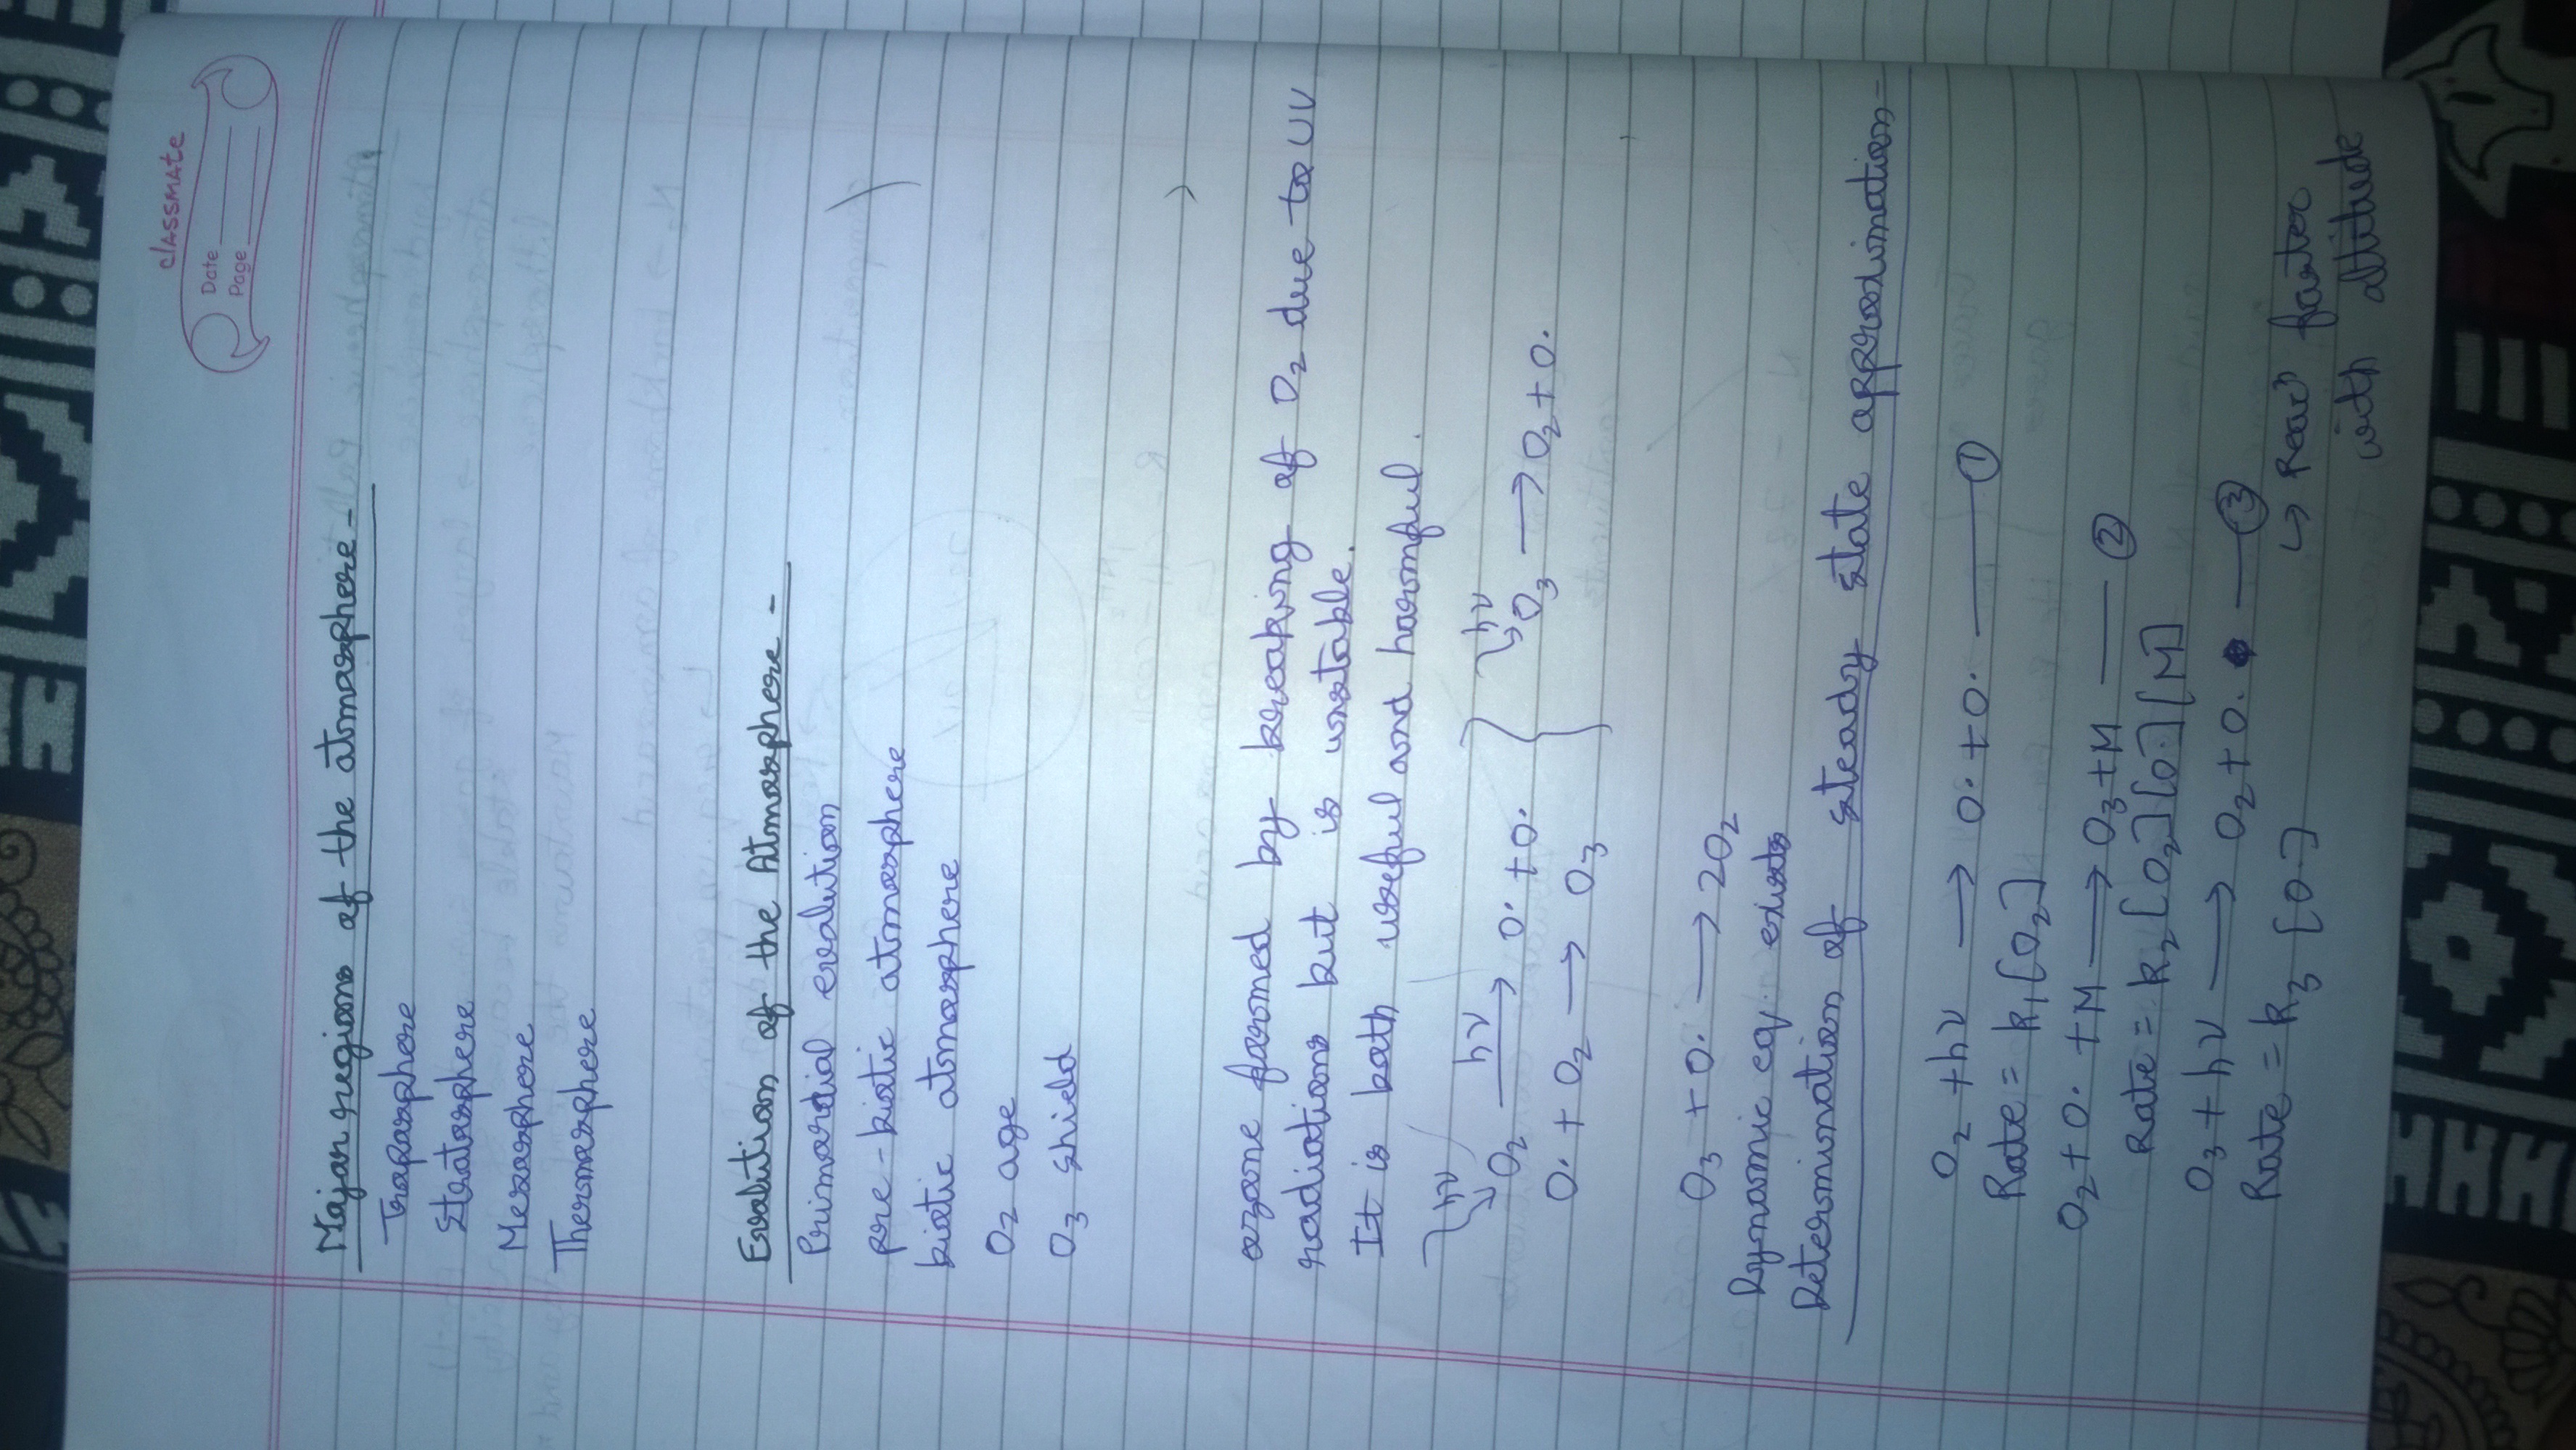 classmate
Date
Page
Major regions of the atmosphere -
Troposphere
Stratosphere
Mesosphere
Thermosphere
Evolution of the Atmosphere -
Primordial evolution
pre-biotic atmosphere
biotic atmosphere
O₂ age
O₃ shield
ozone formed by breaking of O₂ due to UV
radiations but is unstable.
It is both useful and harmful.
hν hν hν
O₂ → O· + O· O₃ → O₂ + O·
O· + O₂ → O₃
O₃ + O· → 2O₂
Dynamic eq. exists
Determination of steady state approximation -
O₂ + hν → O· + O· — ①
Rate = k₁[O₂]
O₂ + O· + M → O₃ + M — ②
Rate = k₂[O₂][O·][M]
O₃ + hν → O₂ + O· — ③
Rate = k₃[O·] ↳ Rexⁿ faster
with altitude